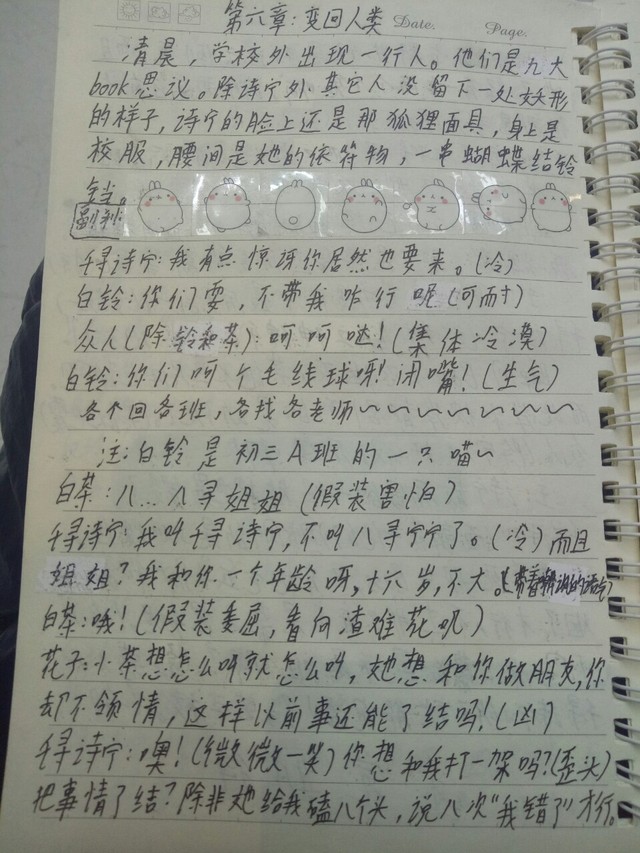 第六章：变回人类 Date. Page.
清晨，学校外出现一行人。他们是九大
book思议。除诗宁外其它人没留下一处妖形
的样子，诗宁的脸上还是那狐狸面具，身上是
校服，腰间是她的依符物，一串蝴蝶结铃
铛。
千寻诗宁：我有点惊讶你居然也要来。（冷）
白铃：你们耍，不带我咋行呢（可耐）
众人（除铃和茶）：呵呵哒！（集体冷漠）
白铃：你们呵个毛线球呀！闭嘴！（生气）
各个回各班，各找各老师~~~~~~~~
注：白铃是初三A班的一只喵~
白茶：八...八寻姐姐（假装害怕）
千寻诗宁：我叫千寻诗宁，不叫八寻宁宁了。（冷）而且
姐姐？我和你一个年龄呀，十六岁，不大。（带着的语气）
白茶：哦！（假装委屈，看向渣难花叽）
花子：小茶想怎么叫就怎么叫，她想和你做朋克，你
却不领情，这样以前事还能了结吗！（凶）
千寻诗宁：噢！（微微一笑）你想和我打一架吗？（歪头）
把事情了结？除非她给我磕八个头，说八次“我错了”才行。